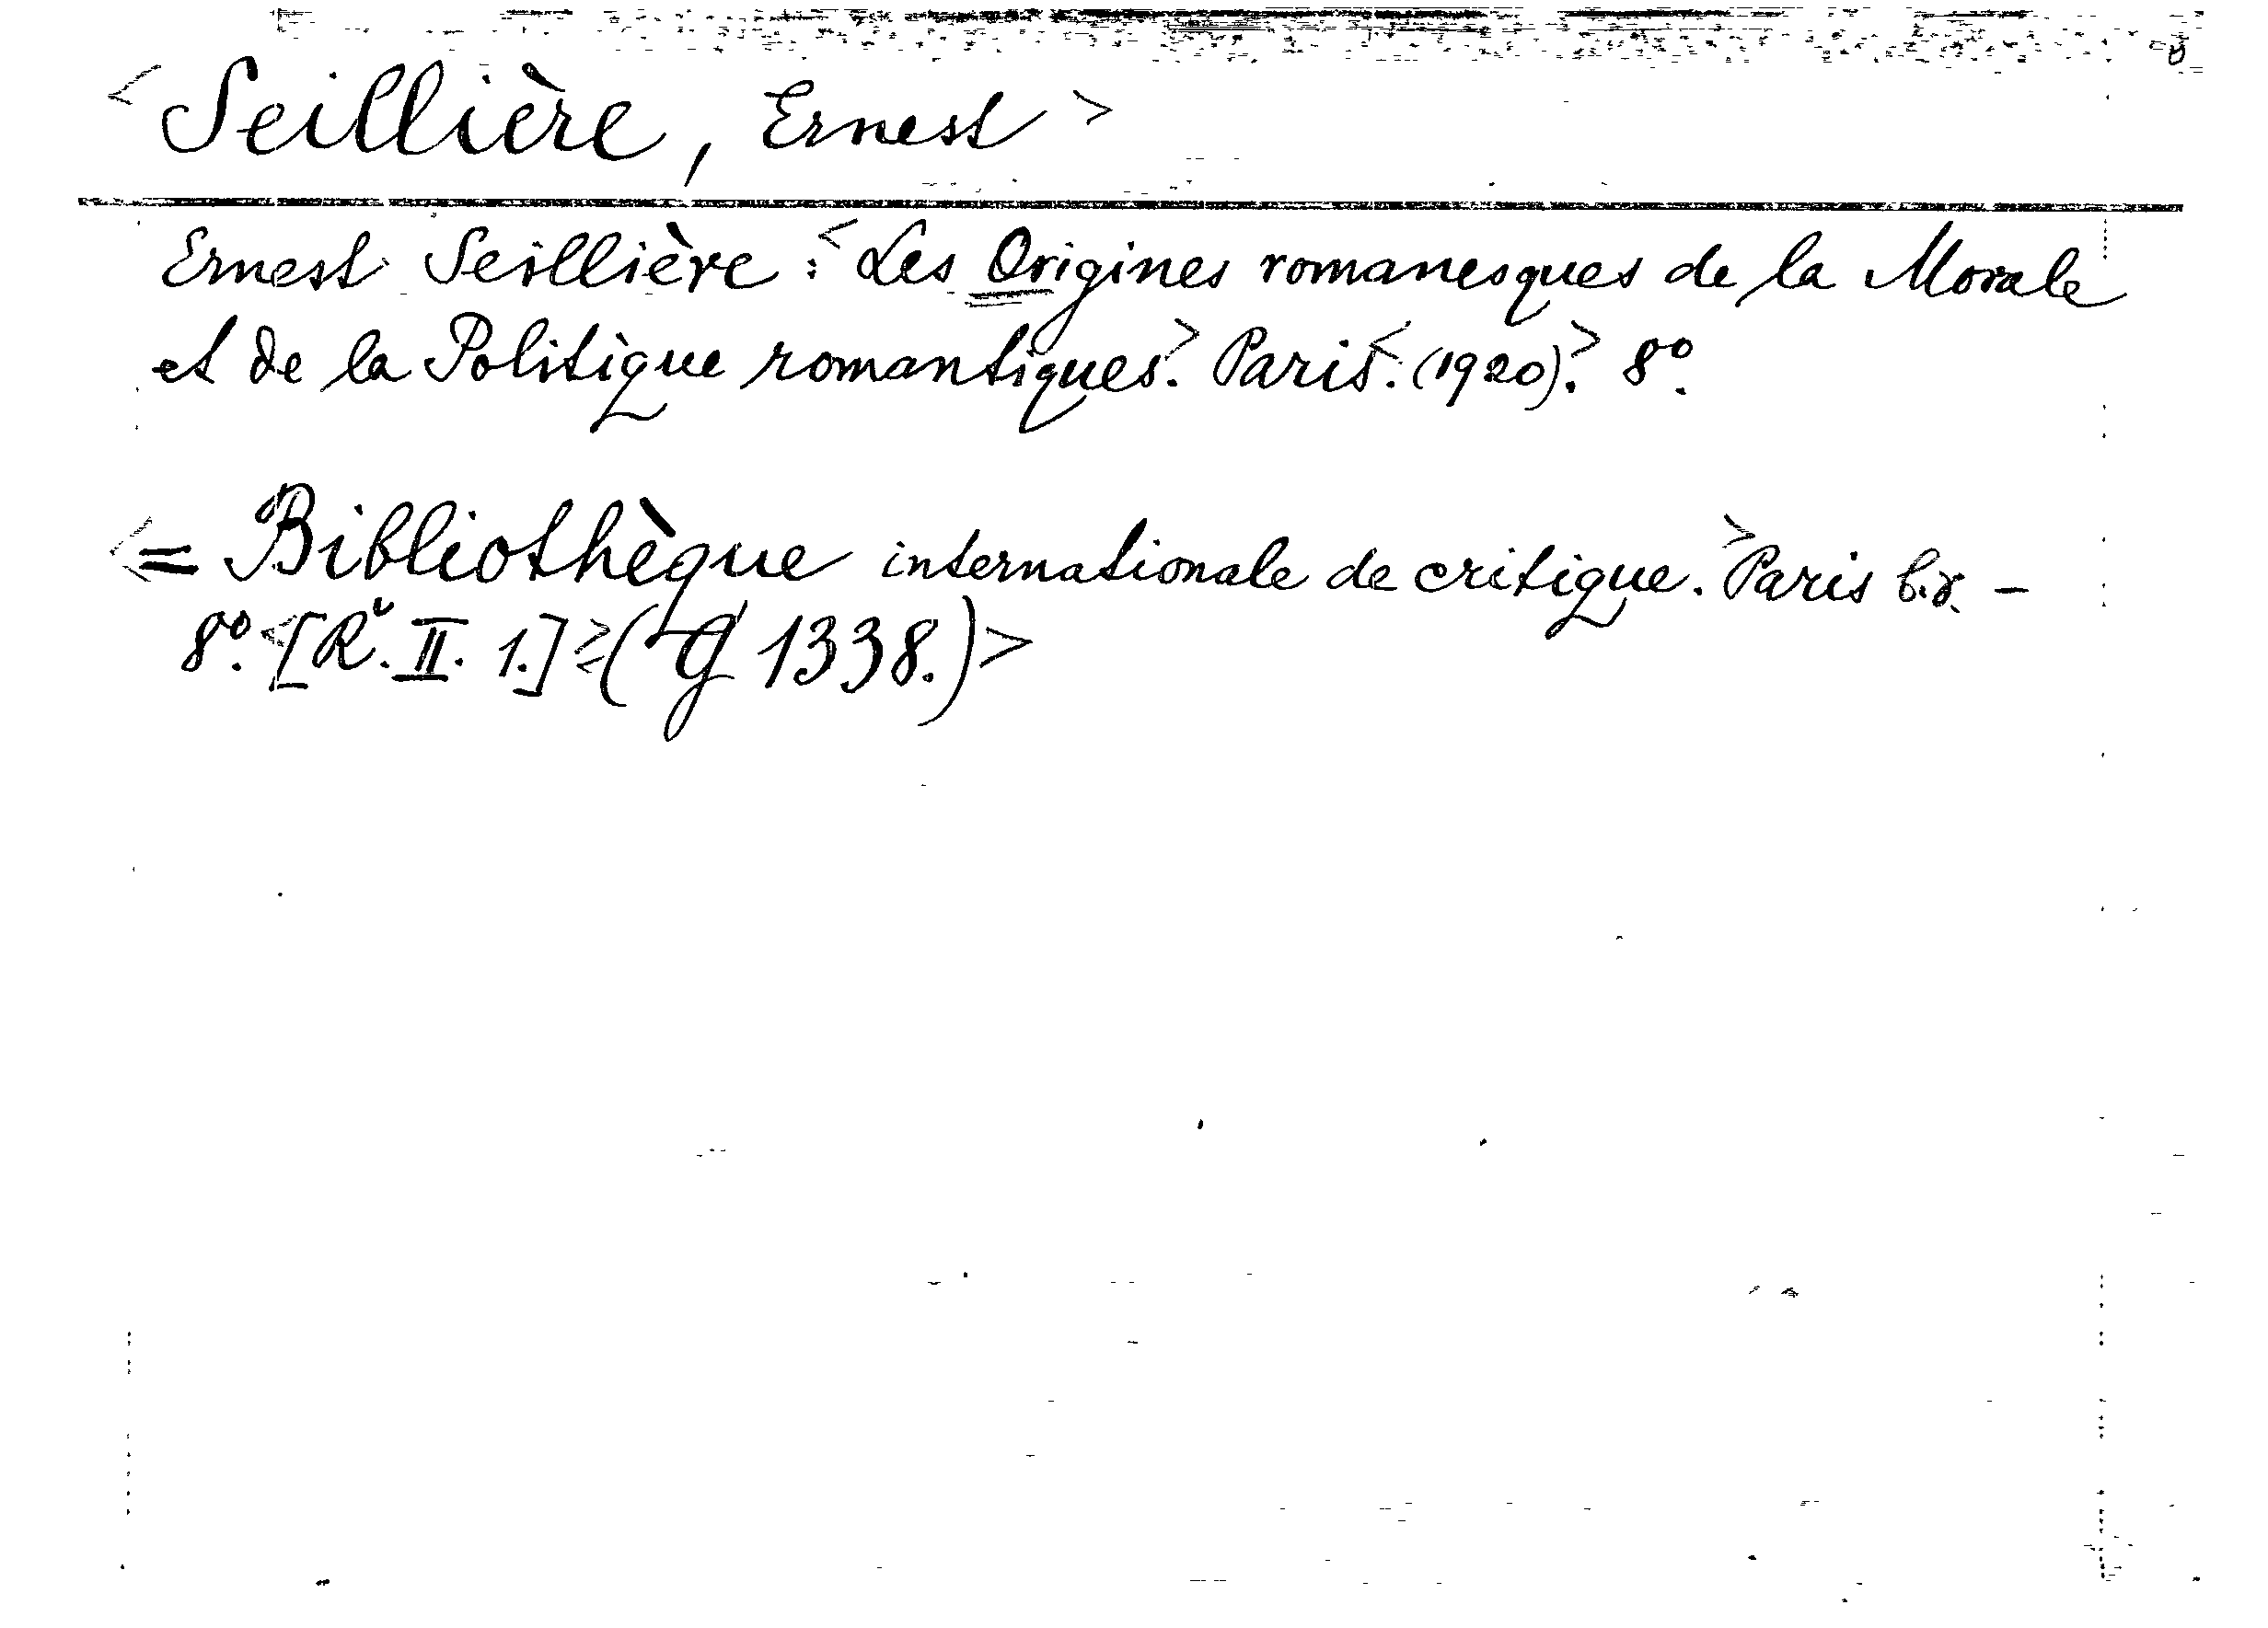 <Seillière, Ernest>
Ernest Seillière: <Les Origines romanesques de la Morale
et de la Politique romantiques.> Paris <: (1920).> 8º.
<= Bibliothèque internationale de critique.> Paris b. r. –
8º. <[Rč. II. 1.]> <(G 1338.)>